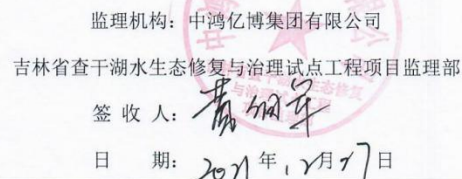 监理机构：中鸿亿博集团有限公司
吉林省查干湖水生态修复与治理试点工程项目监理部
签 收 人：
日 期：2021年12月27日